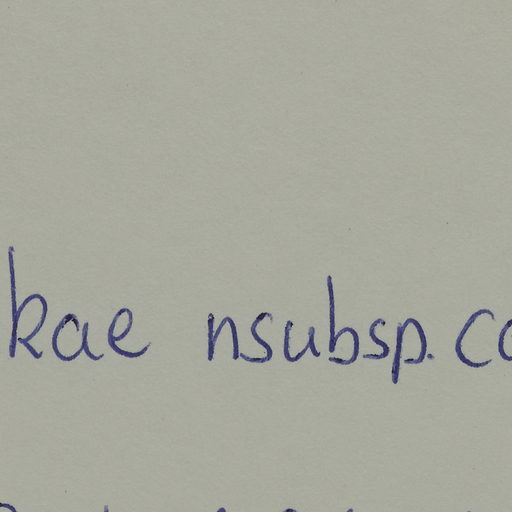 kae nsubsp. co